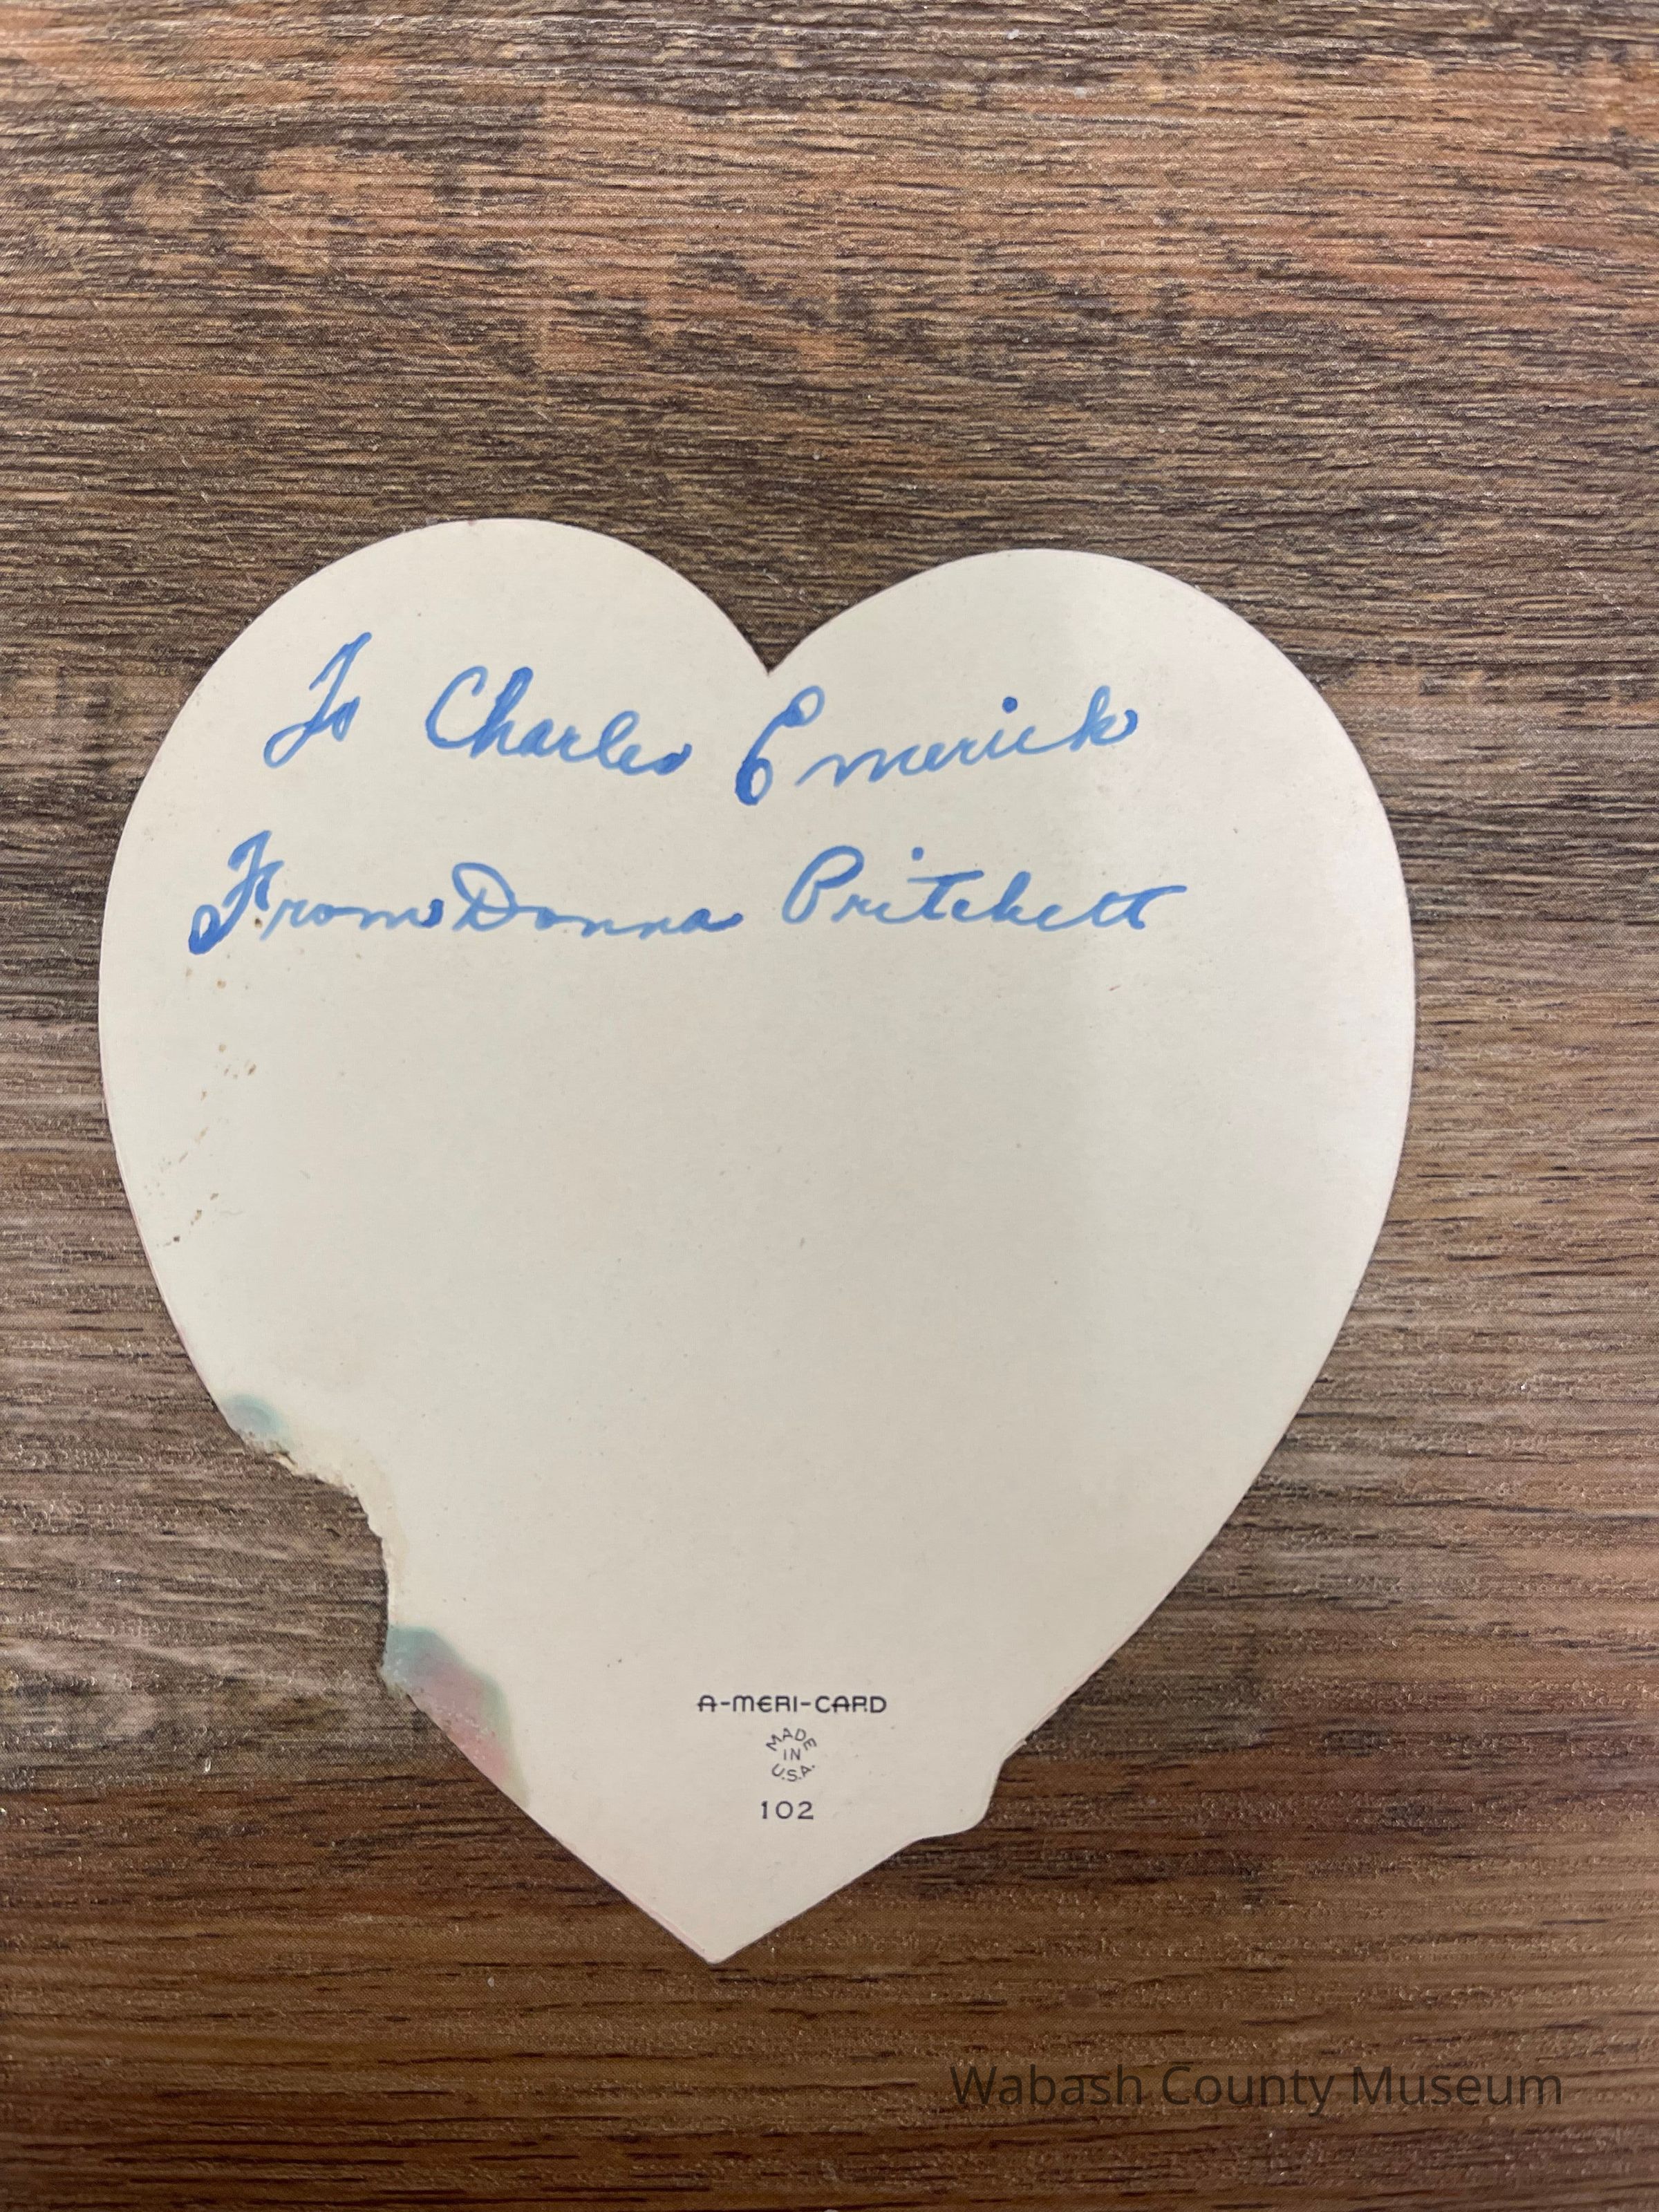 To Charles Emerick
From Donna Pritchett
A-MERI-CARD
MADE
IN
U.S.A.
102
Wabash County Museum